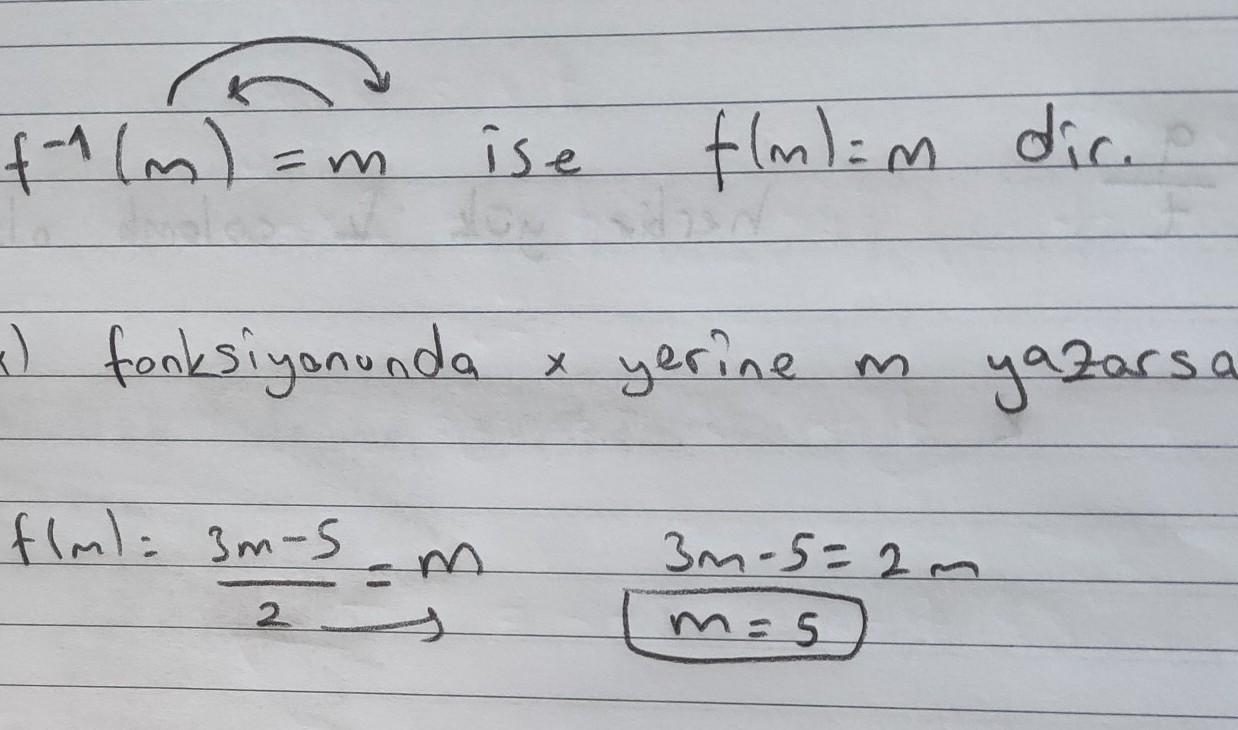 f⁻¹(m) = m ise f(m) = m dir.
) fonksiyonunda x yerine m yazarsa
f(m) = (3m-5)/2 = m 3m-5 = 2m
m = 5